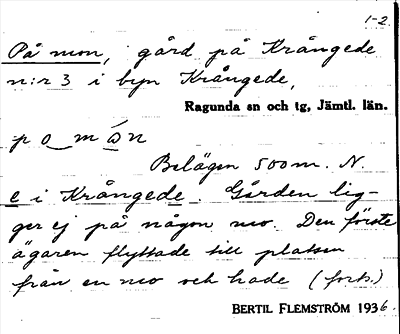 1-2
På mon, gård på Krångede
n:r 3 i byn Krångede,
Ragunda sn och tg, Jämtl. län.
Belägen 500 m. N.
e i Krångede. Gården lig-
ger ej på någon mo. Den förste
ägaren flyttade till platsen
från en mo och hade (forts.)
BERTIL FLEMSTRÖM 1936.